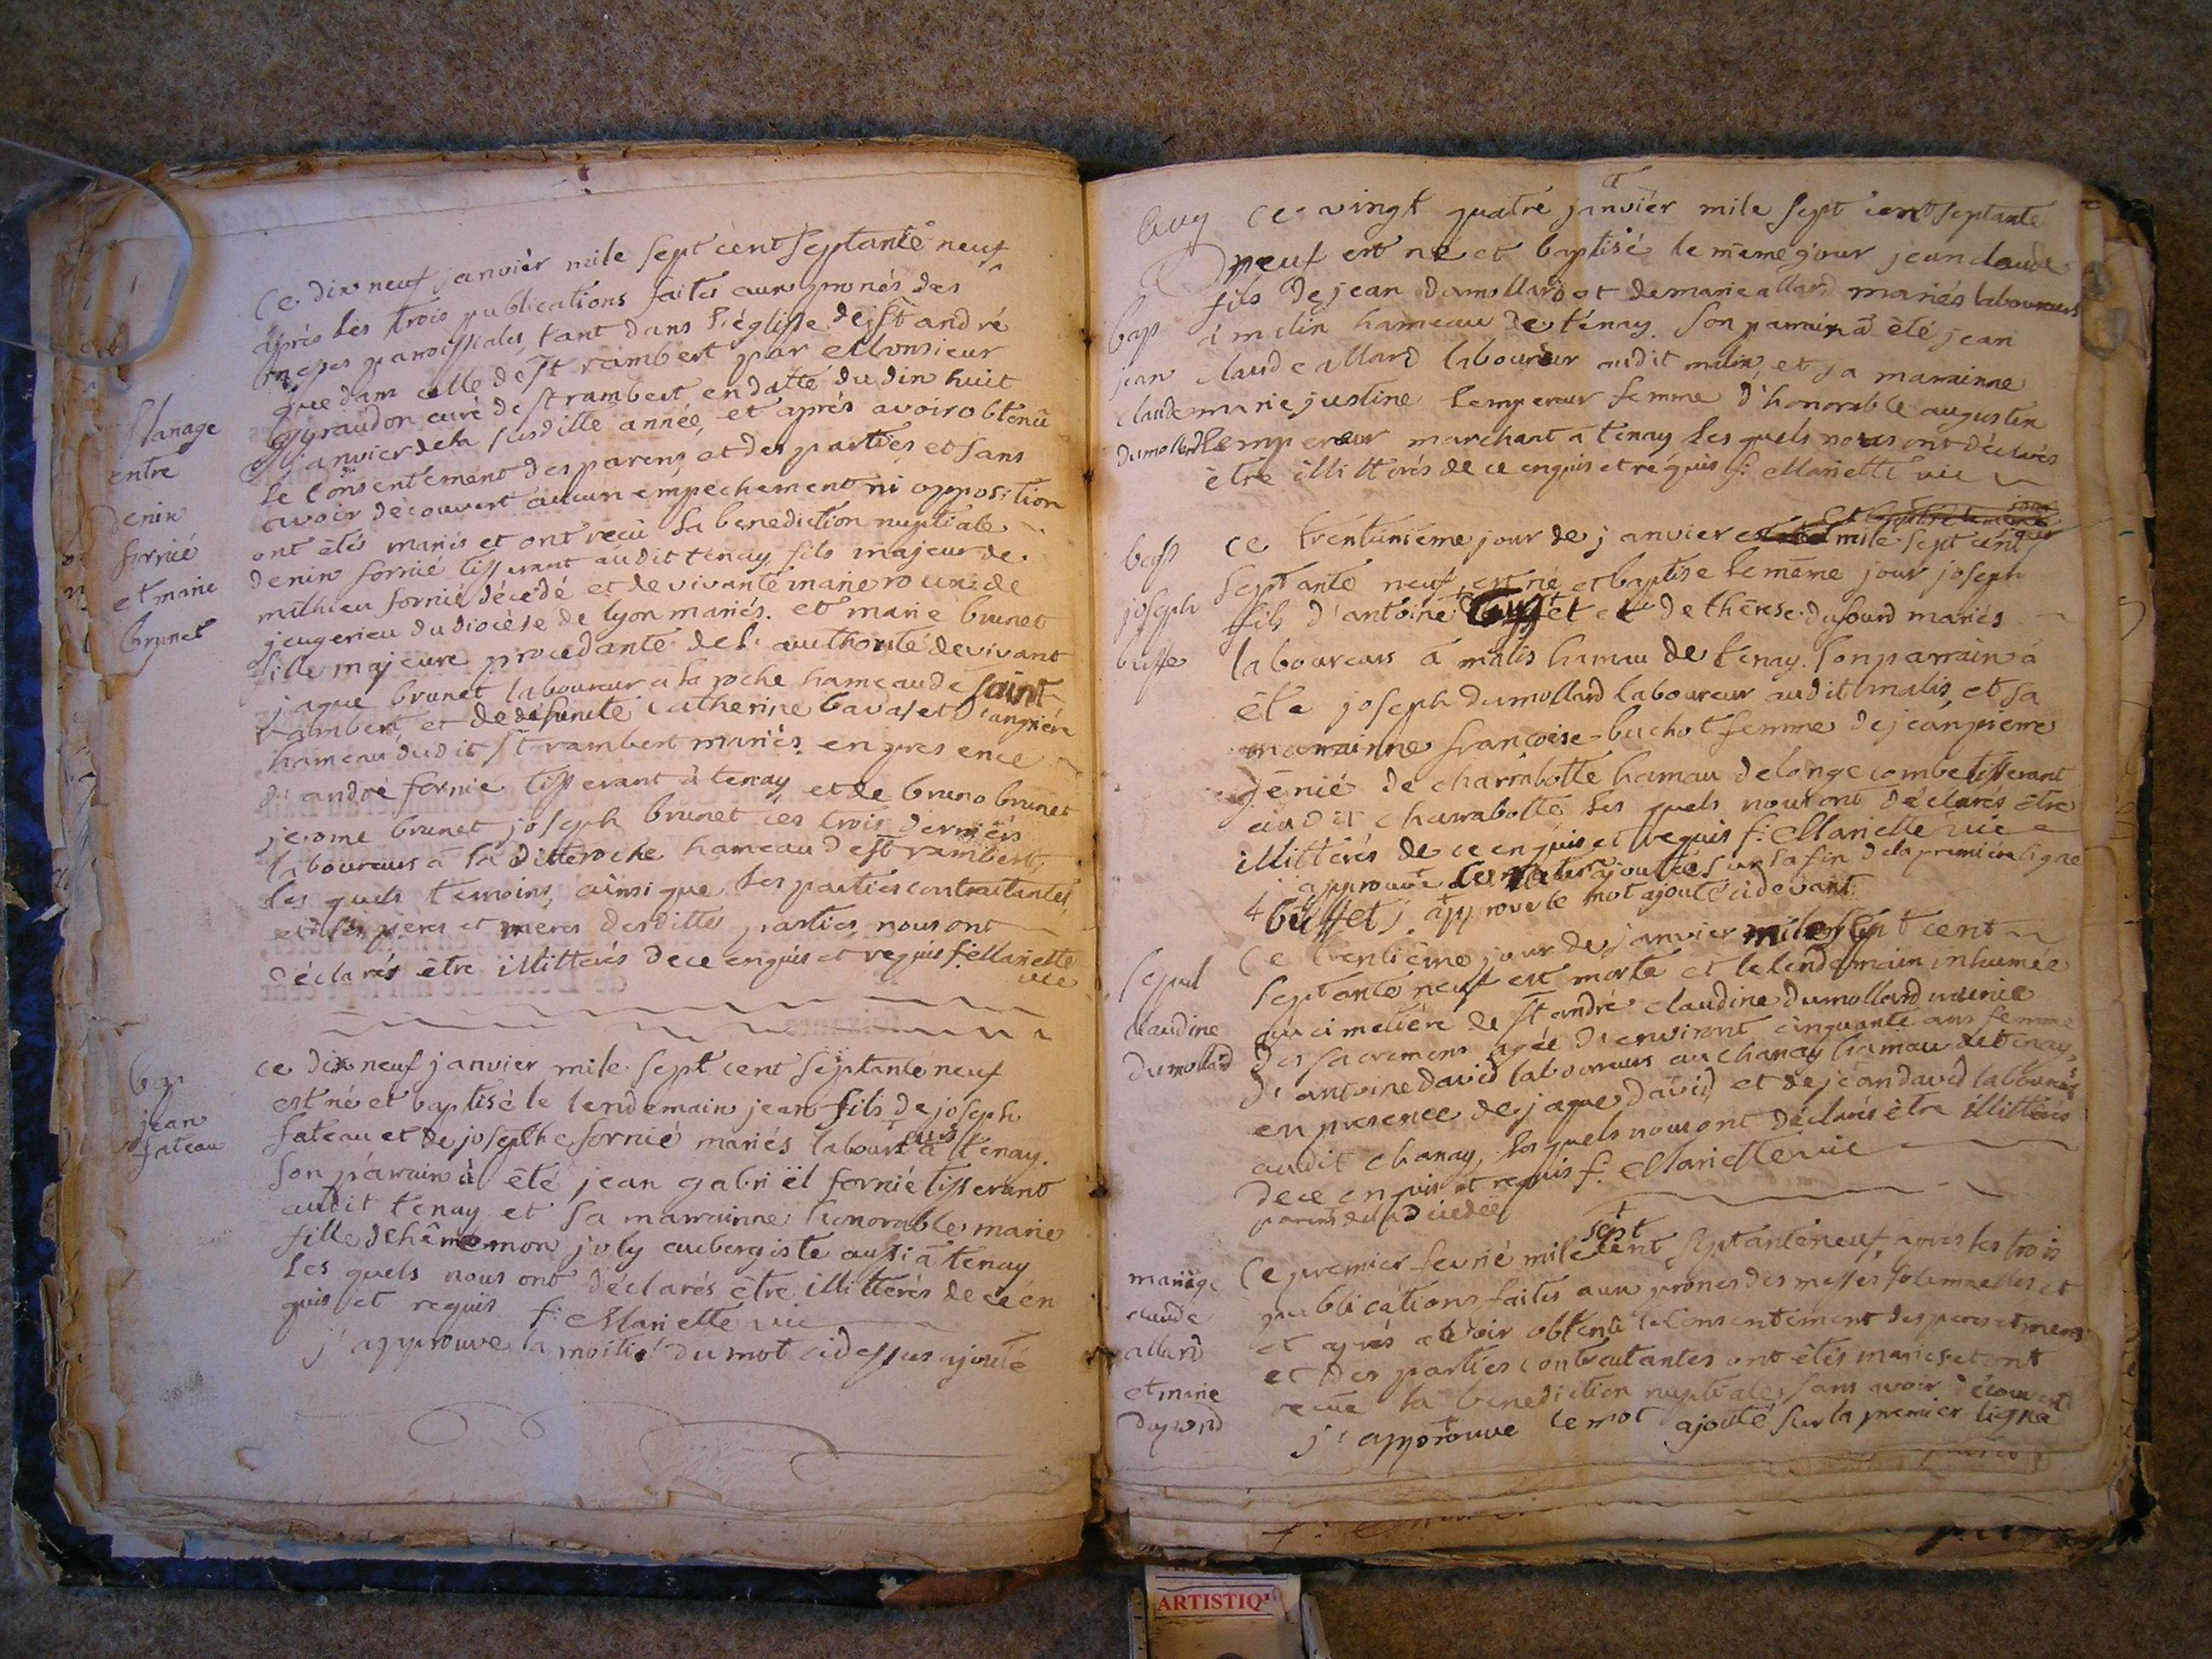 Ce dix neuf janvièr mile sept cent septante neuf
après les trois publications faites aux pronés des
messes paroissiales, tant dans l'église de st andré
que dans celle de st rambert par Monsieur
gyraudon curé de st rambert, en datte du dix huit
janvier de la susditte année, et après avoir obtenû
le consentement des parens et des parties et sans
avoir découvert aucun empechement ni opposition
ont étés mariés et ont reçû la benediction nuptiale
denix fornié tisserant audit tenay fils majeur de
mathieu fornié décédé et de vivante marie roux de
jeugerieu du diocèse de lyon mariés. et marie brunet
fille majeure procedante de l'authorité de vivant
jaque brunet laboureur a la roche hameau de saint
rambert, et de defuncte catherine bavaset d'angrière
hameau dudit st rambert mariés. en presence
d'andré fornié tisserant à tenay et de bruno brunet
jerome brunet joseph brunet ces trois derniers
laboureurs à la ditte roche hameau de st rambert,
les quels temoins, ainsi que les parties contractantes,
et les peres et meres desdittes parties nous ont
déclarés être illittérés de ce enquis et requis f: Mariette
vic
Mariage
entre
denix
fornié
et marie
brunet
ce dix neuf janvier mile sept cent septante neuf
est né et baptisé le lendemain jean fils de joseph
fateau et de josephe fornié mariés laboureurs à tenay.
son parrain à été jean gabriël fornié tisserant
audit tenay et sa marrainne honorable marie
fille d'hêmemon joly aubergiste aussi à tenay
les quels nous ont déclarés être illittérés de ce en
quis et requis f: Mariette vic
j'approuve la moitié du mot cidessus ajouté
bap
jean
fateau
Ce vingt quatre janvièr mile sept cent septante
neuf est né et baptisé le même jour jean claude
fils de jean dumollard et de marie allard mariés laboureurs
à malix hameau de ténay. son parrain à été jean
claude allard laboureur audit malix, et sa marrainne
marie justine lempereur femme d'honorable augustin
lempereur marchant à tenay les quels nous ont déclarés
être illittérés de ce enquis et réquis f: Mariette vic
bap
jean
claude
dumollard
ce trentunieme jour de janvier mile sept cent
septante neuf est né et baptise le même jour joseph
fils d'antoine et de thérese dufourd mariés
laboureurs à malis hamau de tenay. son parrain à
été joseph dumollard laboureur audit malis, et sa
marrainne francoise buchot femme de jean pierre
génié de charabotte hamau de longecombe tisserant
audit charabotte les quels nous ont déclarés être
illittérés de ce enquis et requis f: Mariette vic
approuvé ajoutée sur la fin de la premiére ligne
buffet j'approuve le mot ajouté cidevant
bap
joseph
buffe
Ce trentième jour de janvier mile sept cent
septante neuf est morte et le lendemain inhumée
au cimetière de st andré claudine dumollard munie
des sacremens agée d'environt cinquante ans femme
d'antoine david laboureurs au chanay hamau de tenay,
en presence de jaque david et de jean david laboureurs
audit chanay, les quels nous ont déclarés être illittérés
de ce enquis et requis f: Mariette vic
parents de la décédée
sepul
claudine
dumollard
Ce premier fevrié mile sept cent septante neuf, après les trois
publications faites aux prones des messes solemnelles et
et après avoir obtenû le consentement des peres et meres
et des parties contractantes ont étés mariés et ont
reçue la benediction nuptiale, sans avoir découvert
j'approuve le mot ajouté sur la premier ligne
mariage
claude
allard
et marie
dupond
ARTISTIQ